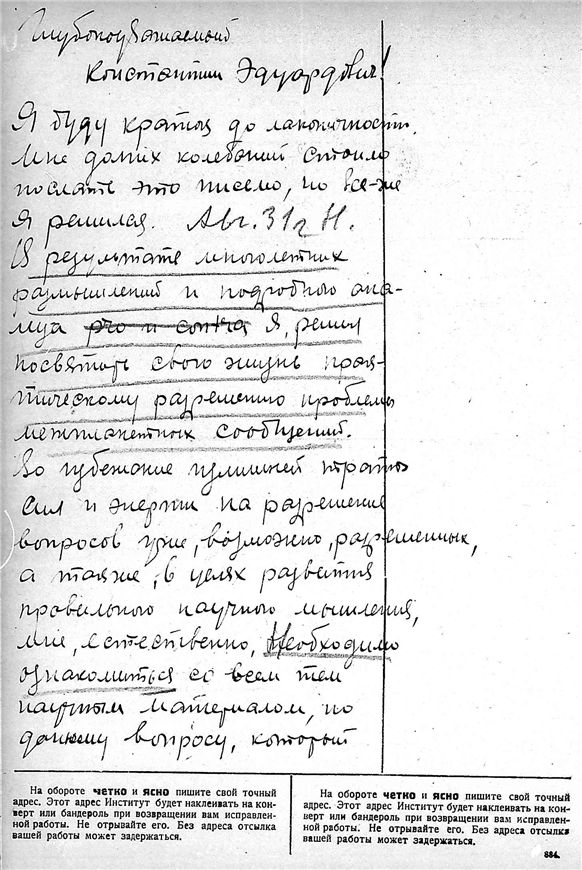 Глубокоуважаемый
Константин Эдуардович!
Я буду краток до лаконичности.
Мне долгих колебаний стоило
послать это письмо, но все-же
я решился. Авг. 31 г Н.
В результате многолетних
размышлений и подробного ана-
лиза pro и contra я, решил
посвятить свою жизнь прак-
тическому разрешению проблемы
межпланетных сообщений.
Во избежание излишней траты
сил и энергии на разрешение
вопросов уже, возможно, разрешенных,
а также, в целях развития
правильного научного мышления,
мне, естественно, необходимо
ознакомиться со всем тем
научным материалом, по
данному вопросу, который
На обороте четко и ясно пишите свой точный
адрес. Этот адрес Институт будет наклеивать на кон-
верт или бандероль при возвращении вам исправлен-
ной работы. Не отрывайте его. Без адреса отсылка
вашей работы может задержаться.
На обороте четко и ясно пишите свой точный
адрес. Этот адрес Институт будет наклеивать на кон-
верт или бандероль при возвращении вам исправлен-
ной работы. Не отрывайте его. Без адреса отсылка
вашей работы может задержаться.
884.